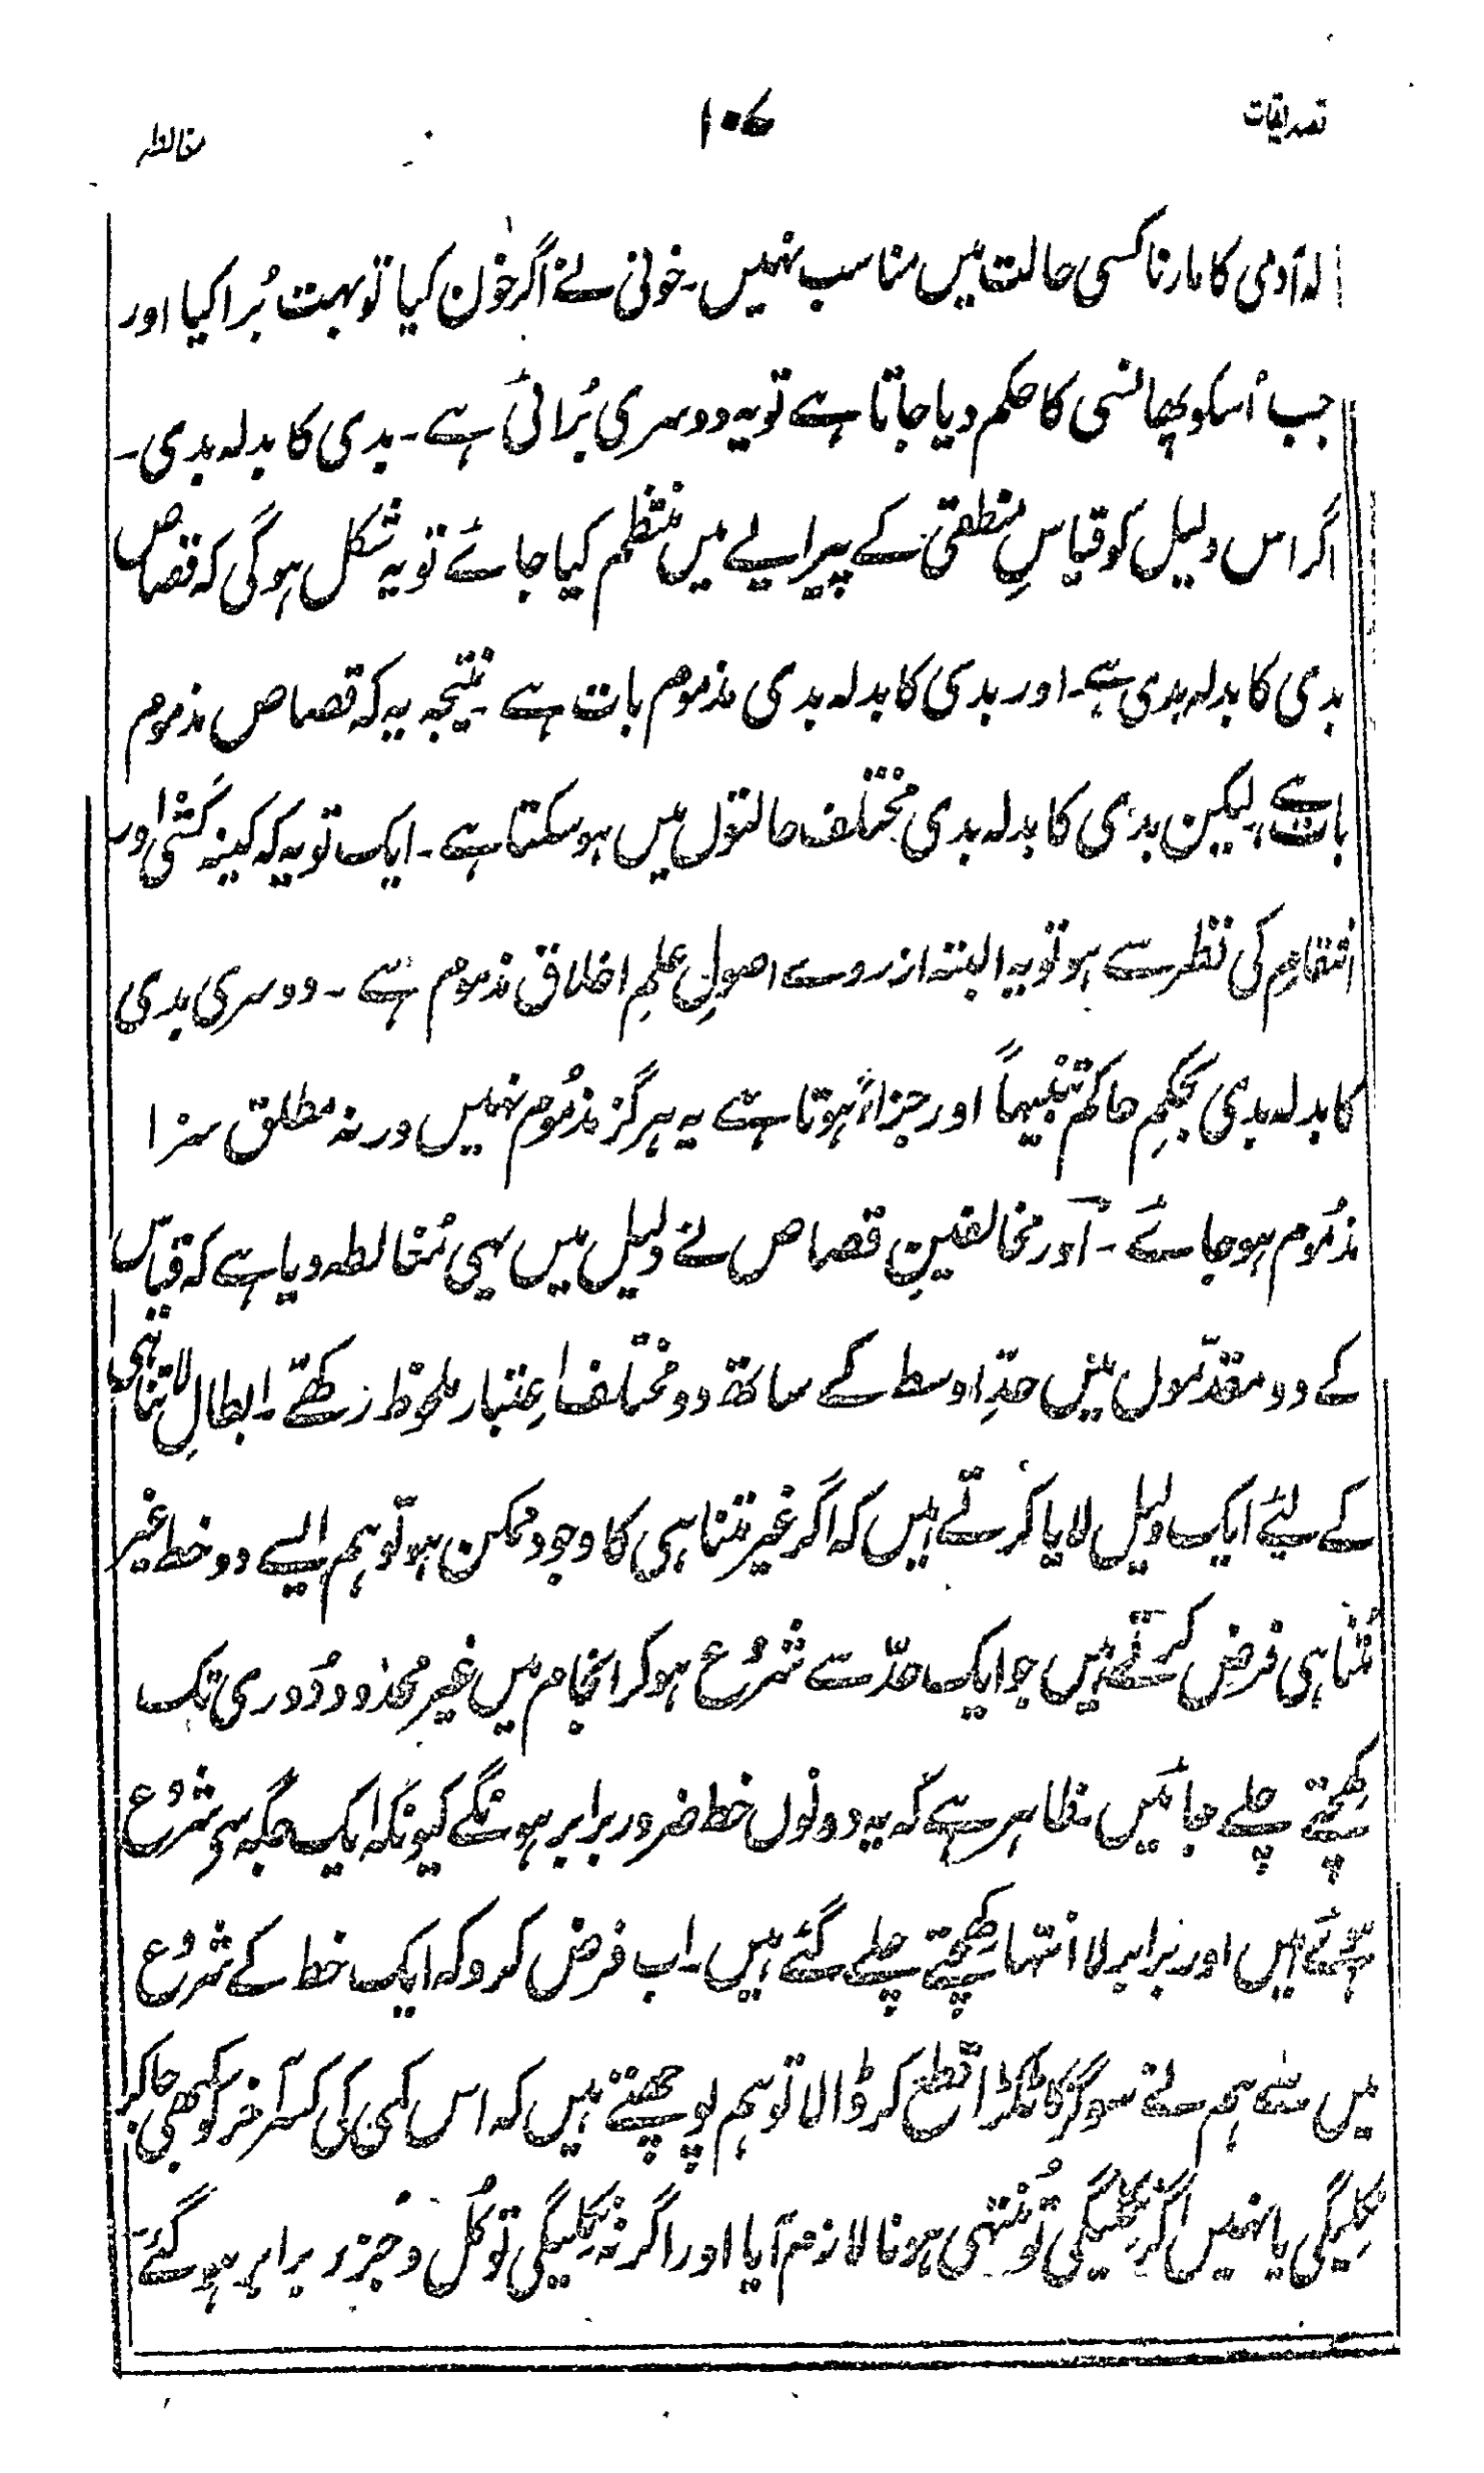 تصدیقات ۱۰۷ مغالطہ
کہ آدمی کا مارنا کسی حالت میں مناسب نہیں۔ خونی نے اگر خون کیا تو بہت بُرا کیا اور
جب اُسکو پھانسی کا حکم دیا جاتا ہے تو یہ دوسری بُرائی ہے۔ بدی کا بدلہ بدی۔
اگر اس دلیل کو قیاسِ منطقی کے پیرایے میں منتظم کیا جائے تو یہ شکل ہوگی کہ قصاص
بدی کا بدلہ بدی ہے۔ اور بدی کا بدلہ بدی مذموم بات ہے۔ نتیجہ یہ کہ قصاص مذموم
بات ہے۔ لیکن بدی کا بدلہ بدی مختلف حالتوں میں ہوسکتا ہے۔ ایک تو یہ کہ کینہ کشی اور
انتقام کی نظر سے ہو تو یہ البتہ از روے اصولِ علمِ اخلاق مذموم ہے۔ دوسری بدی
کا بدلہ بدی بحکمِ حاکم تنبیہاً اور جزاءً ہوتا ہے یہ ہرگز مذموم نہیں ورنہ مطلق سزا
مذموم ہو جائے۔ اور مخالفینِ قصاص نے دلیل میں یہی مُغالطہ دیا ہے کہ قیاس
کے دو مقدّموں میں حدِّ اوسط کے ساتھ دو مختلف اعتبار ملحوظ رکھتے۔ ابطالِ لاتناہی
کے لئے ایک دلیل لایا کرتے ہیں کہ اگر غیر متناہی کا وجود ممکن ہو تو ہم ایسے دو خط غیر
مُتناہی فرض کرتے ہیں جو ایک حدّ سے شرُوع ہوکر انجام میں غیر محدُود دُوری تک
کھچتے چلے جائیں۔ ظاہر ہے کہ یہ دونوں خط ضرور برابر ہونگے کیونکہ ایک جگہ سے شرُوع
ہوئے ہیں اور برابر لا انتہا کھچتے چلے گئے ہیں۔ اب فرض کرو کہ ایک خط کے شرُوع
میں سے ہم نے سوگز کا ٹکڑا قطع کر ڈالا تو ہم پوچھتے ہیں کہ اس کمی کی کسر آخر کو بھی جاکر
نکلیگی یا نہیں اگر نکلیگی تو مُنتہی ہونا لازم آیا اور اگر نہ نکلیگی تو کُل و جزر برابر ہوگئے۔